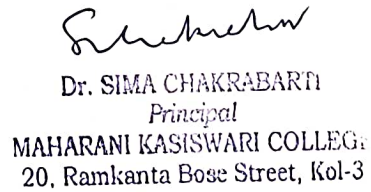 Dr. SIMA CHAKRABARTI
Principal
MAHARANI KASISWARI COLLEGE
20, Ramkanta Bose Street, Kol-3